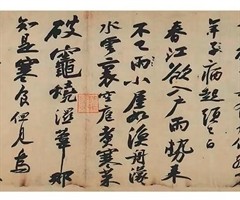 年子病起須已白
春江欲入戶雨勢來
不已雨小屋如漁舟濛
水雲裏空庖煮寒菜
破竈燒濕葦那
知是寒食但見烏